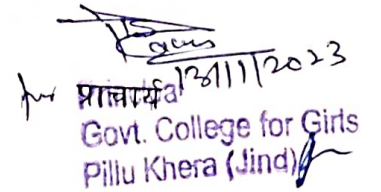 13/1/2023
for प्राचार्य
Govt. College for Girls
Pillu Khera (Jind)